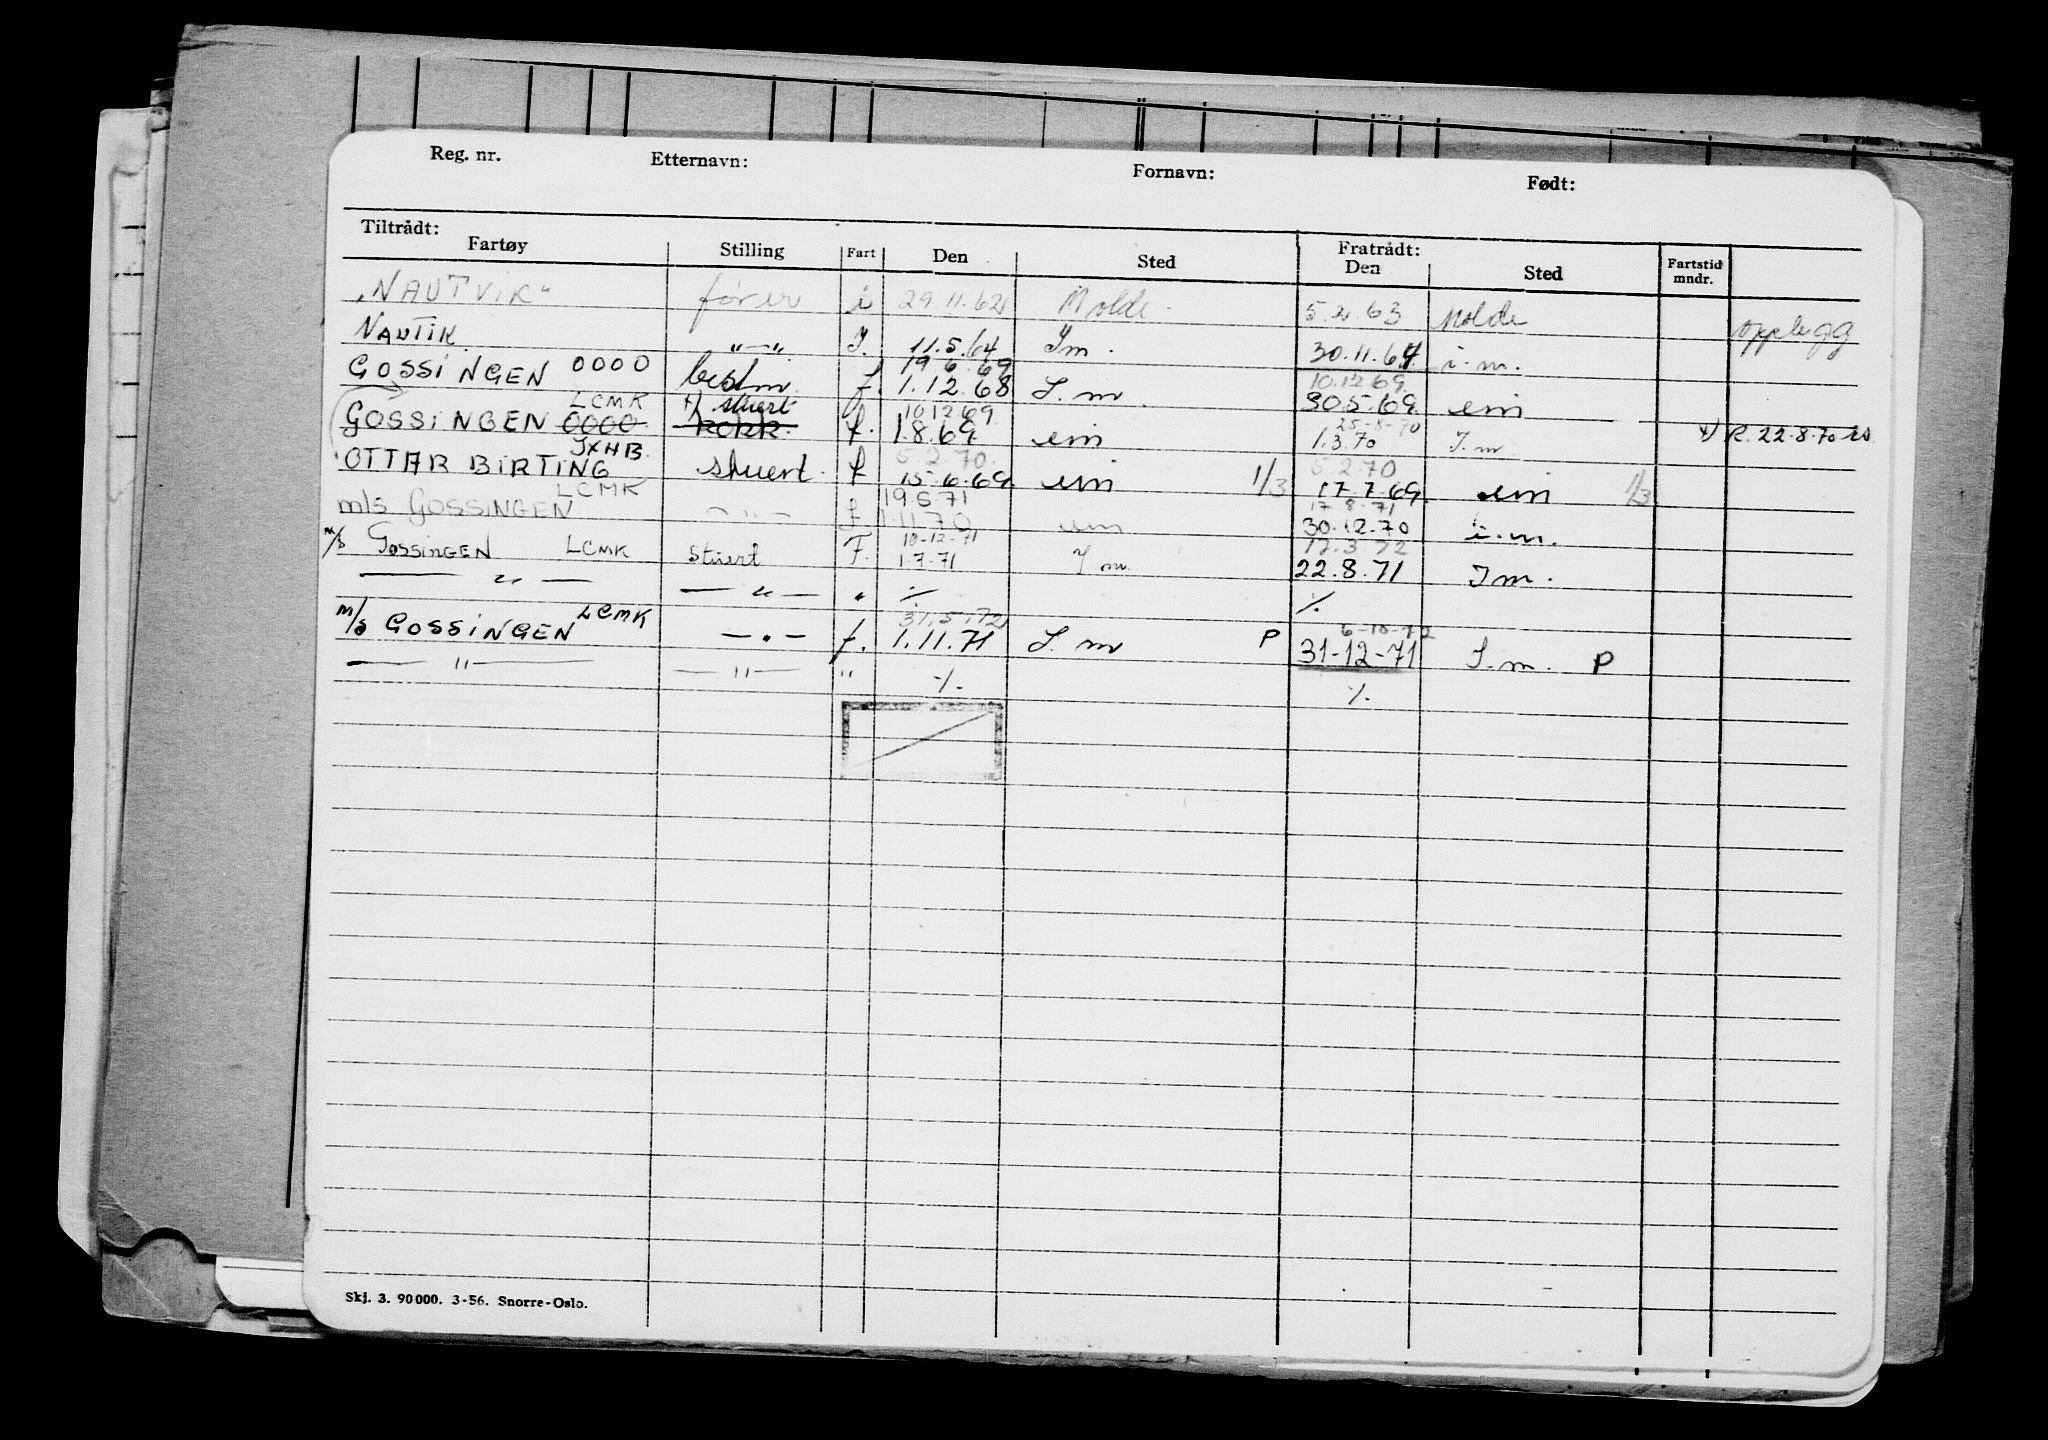 Reg. nr. Etternavn: Fornavn: Født:
Tiltrådt: Fratrådt:
Fartøy Stilling Fart Den Sted Den Sted Fartstid mndr.
"NAUTVIK" fører i 29.11.62 Molde. 5.2.63 Molde opplegg
NAUTIK —"— I. 11.5.64 Im. 30.11.64 i.m.
19.6.69 10.12.69
GOSSINGEN 0000 bestm. f. 1.12.68 S.m. 30.5.69 em
LCMK x) stuert 10.12.69 25-8-70
GOSSINGEN 0000 kokk f. 1.8.69 em 1.3.70 I.m x) R. 22.8.70
JXHB. 5.2.70. 5.2.70
OTTAR BIRTING stuert. f 15.6.69 em 1/3 17.7.69. em 1/3
LCMK 19.6.71 17.8.71
m/s GOSSINGEN —"— f. 1.11.70 em 30.12.70 i.m.
10-12-71 17.3.72
m/s GOSSINGEN LCMK Stuert F. 1.7.71 I m. 22.8.71 I m.
— " — — " — " ⁒ ⁒
LCMK 31.5.72 6-10-72
m/s GOSSINGEN — " — f. 1.11.71 S.m P 31-12-71 S.m. P
— " — — " — " ⁒ ⁒
Skj. 3. 90000. 3-56. Snorre-Oslo.